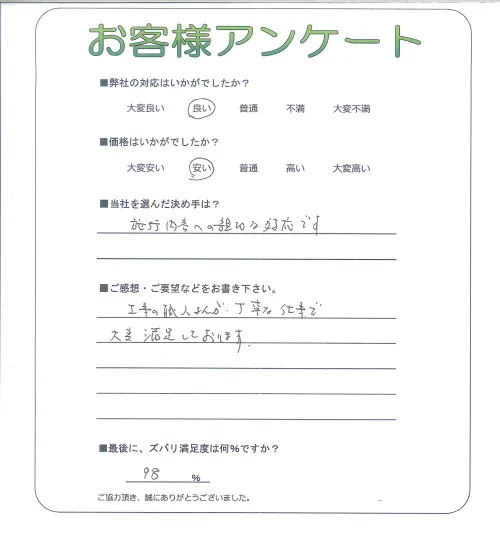 お客様アンケート
■弊社の対応はいかがでしたか？
大変良い 良い 普通 不満 大変不満
■価格はいかがでしたか？
大変安い 安い 普通 高い 大変高い
■当社を選んだ決め手は？
施行内容への親切な対応です
■ご感想・ご要望などをお書き下さい。
工事の職人さんが、丁寧な仕事で
大変満足しております。
■最後に、ズバリ満足度は何%ですか？
98 %
ご協力頂き、誠にありがとうございました。